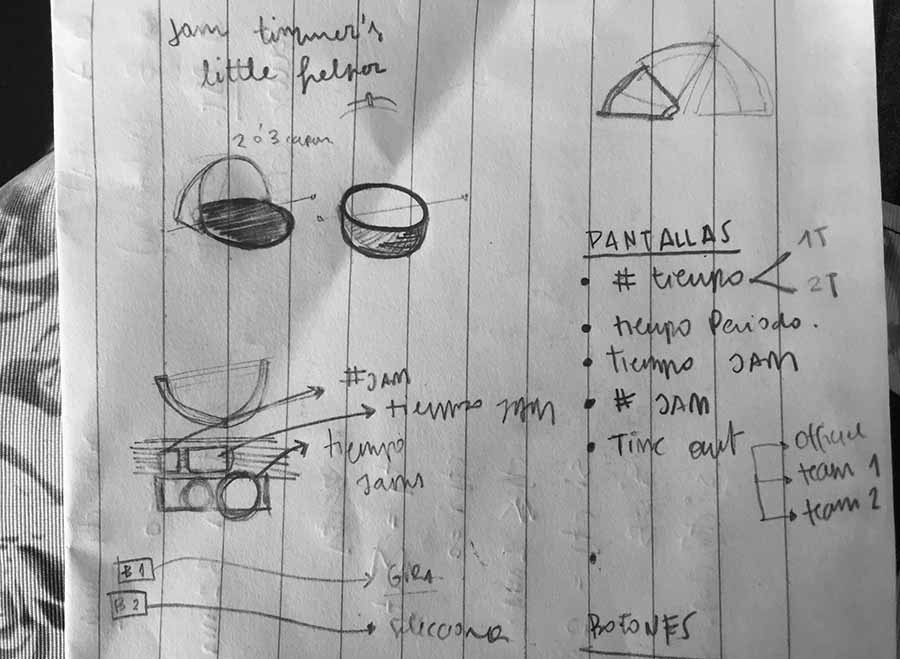 Jam timmer's
little helper
2 ó 3 capas
#JAM
tiempo JAM
tiempo
Jams
B1
GIRA
B2
selecciona
PANTALLAS
• # tiempo
1T
2T
• tiempo Periodo.
• tiempo JAM
• # JAM
• Time out
official
team 1
team 2
•
BOTONES